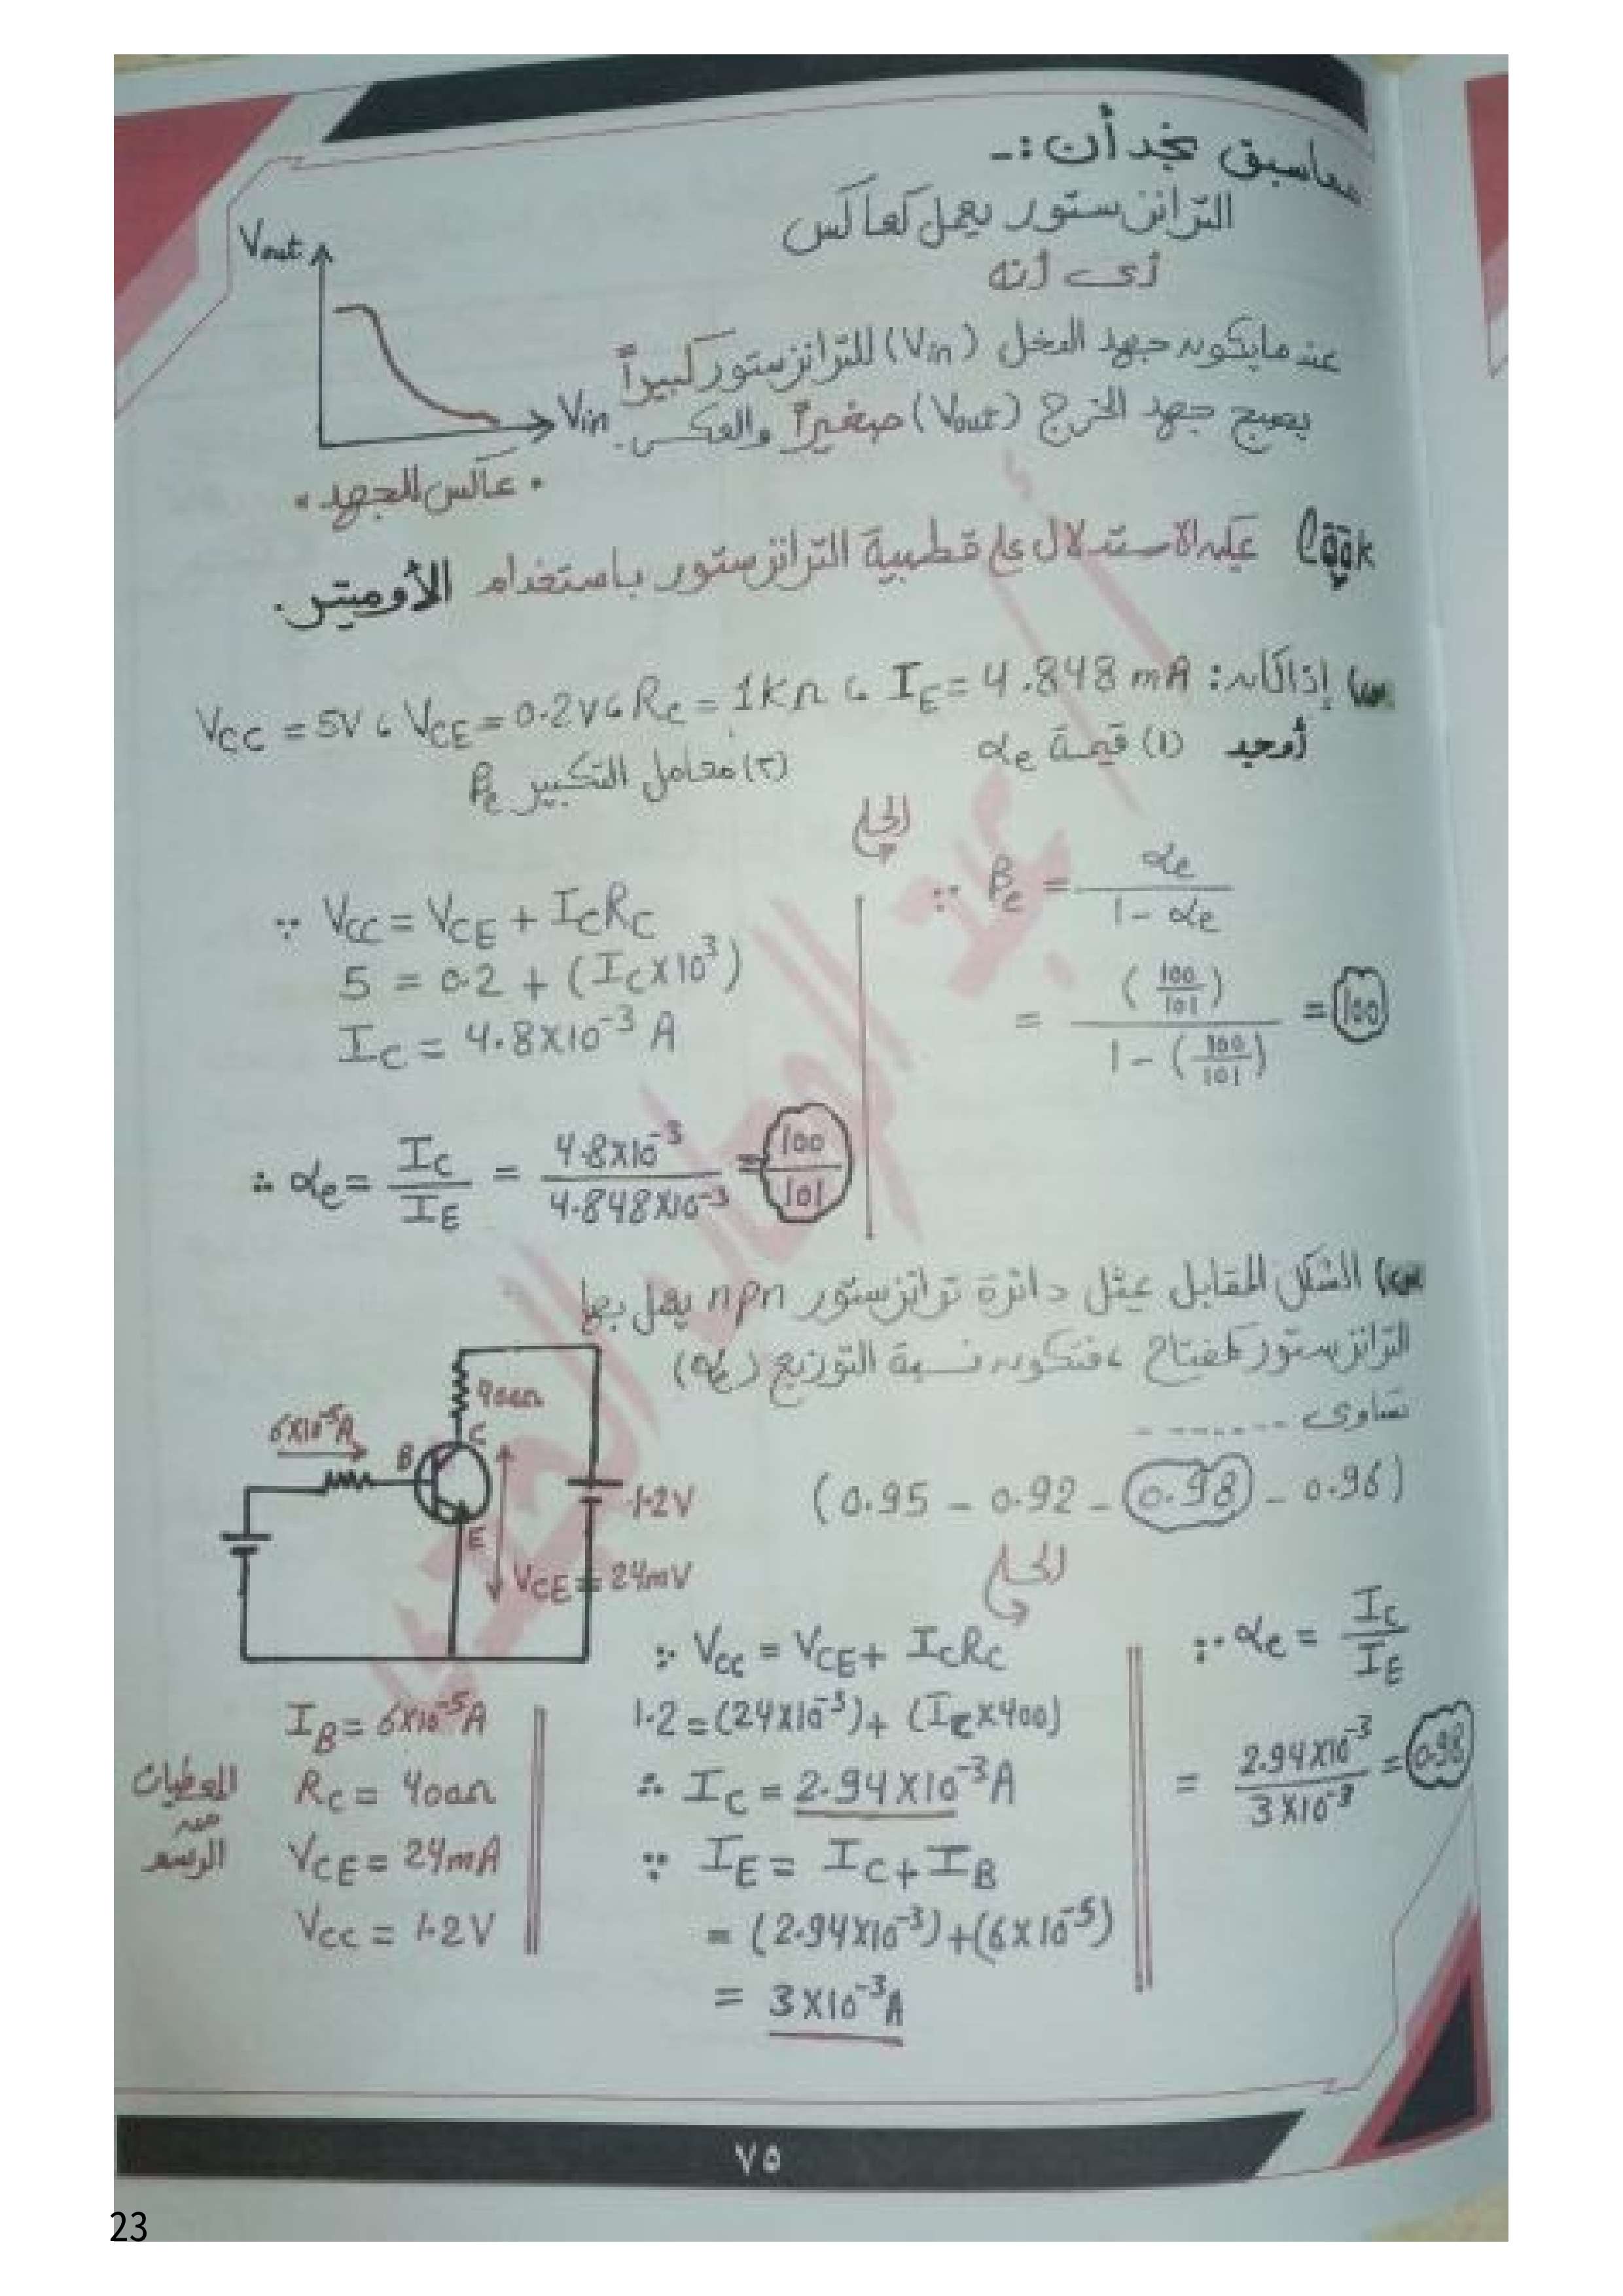 مماسبق نجد أن :-
الترانزستور يعمل كعاكس
أى أنه
عندما يكون جهد الدخل (Vin) للترانزستور كبيراً
يصبح جهد الخرج (Vout) صغيراً والعكس.
Vout
Vin
• عاكس للجهد •
Look يمكن الاستدلال على قطبية الترانزستور باستخدام الأوميتر.
س١) إذا كان: VCC = 5V ، VCE = 0.2V ، RC = 1KΩ ، IE = 4.848 mA
أوجد (١) قيمة αe
(٢) معامل التكبير βe
الحل
∵ VCC = VCE + ICRC
5 = 0.2 + (IC×10³)
IC = 4.8×10⁻³ A
∴ αe = IC/IE = 4.8×10⁻³/4.848×10⁻³ = 100/101
∵ βe = αe/1-αe
= (100/101)/1-(100/101) = 100
س٢) الشكل المقابل يمثل دائرة ترانزستور npn يعمل بها
الترانزستور كمفتاح ، فتكون نسبة التوزيع (αe)
تساوى -------
(0.95 - 0.92 - 0.98 - 0.96)
400Ω
6×10⁻⁵A
C
B
E
1.2V
VCE = 24mV
الحل
المعطيات
من
الرسم
IB = 6×10⁻⁵A
RC = 400Ω
VCE = 24mA
VCC = 1.2V
∵ VCC = VCE + ICRC
1.2 = (24×10⁻³) + (IC×400)
∴ IC = 2.94×10⁻³A
∵ IE = IC + IB
= (2.94×10⁻³)+(6×10⁻⁵)
= 3×10⁻³A
∵ αe = IC/IE
= 2.94×10⁻³/3×10⁻³ = 0.98
٧٥
23